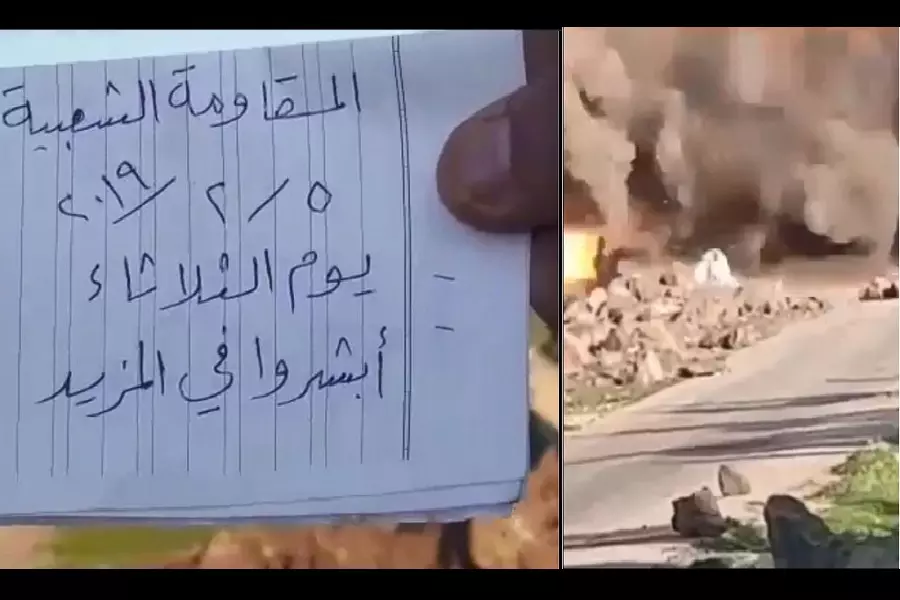 المقاومة الشعبية
٥ / ٢ / ٢٠١٩
يوم الثلاثاء
أبشروا في المزيد